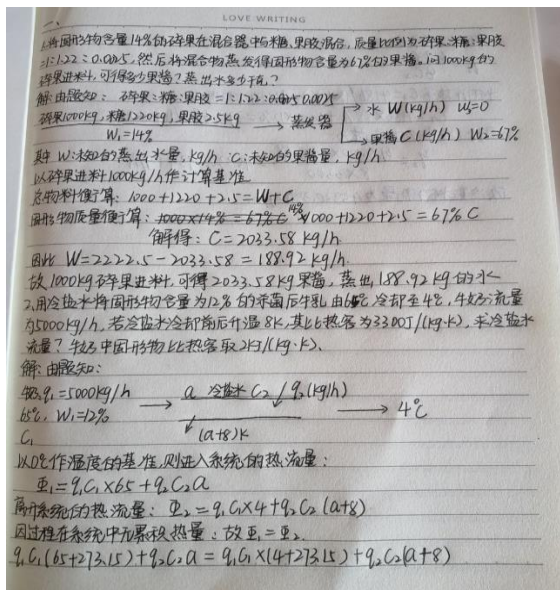 LOVE WRITING
一、
1.将固形物含量14%的碎果在混合器中与糖、果胶混合,质量比例为碎果:糖:果胶
=1:1.22:0.0025,然后将混合物蒸发得固形物含量为67%的果酱。问1000kg的
碎果进料,可得多少果酱?蒸出水多少千克?
解:由题知: 碎果:糖:果胶=1:1.22:0.0025
碎果1000kg,糖1220kg,果胶2.5kg → 蒸发器 → 水 W(kg/h) W3=0
W1=14% → 果酱 C(kg/h) W2=67%
其中 W:未知的蒸出水量,kg/h C:未知的果酱量,kg/h
以碎果进料1000kg/h作计算基准
总物料衡算:1000+1220+2.5=W+C
固形物质量衡算:1000×14%=67%C 14%×1000+1220+2.5=67%C
解得:C=2033.58 kg/h
因此 W=2222.5-2033.58=188.92 kg/h
故1000kg碎果进料,可得2033.58kg果酱,蒸出188.92kg的水
2.用冷盐水将固形物含量为12%的杀菌后牛乳由65℃冷却至4℃,牛奶流量
为5000kg/h,若冷盐水冷却前后升温8K,其比热容为3300J/(kg·K),求冷盐水
流量?牛奶中固形物比热容取2KJ/(kg·K)、
解:由题知:
牛奶q1=5000kg/h a 冷盐水 C2/q2(kg/h)
65℃,W1=12% → → 4℃
C1 (a+8)K
以0℃作温度的基准,则进入系统的热流量:
Φ1=q1C1×65+q2C2a
离开系统的热流量:Φ2=q1C1×4+q2C2(a+8)
因过程在系统中无累积热量:故Φ1=Φ2.
q1C1(65+273.15)+q2C2a=q1C1×(4+273.15)+q2C2(a+8)